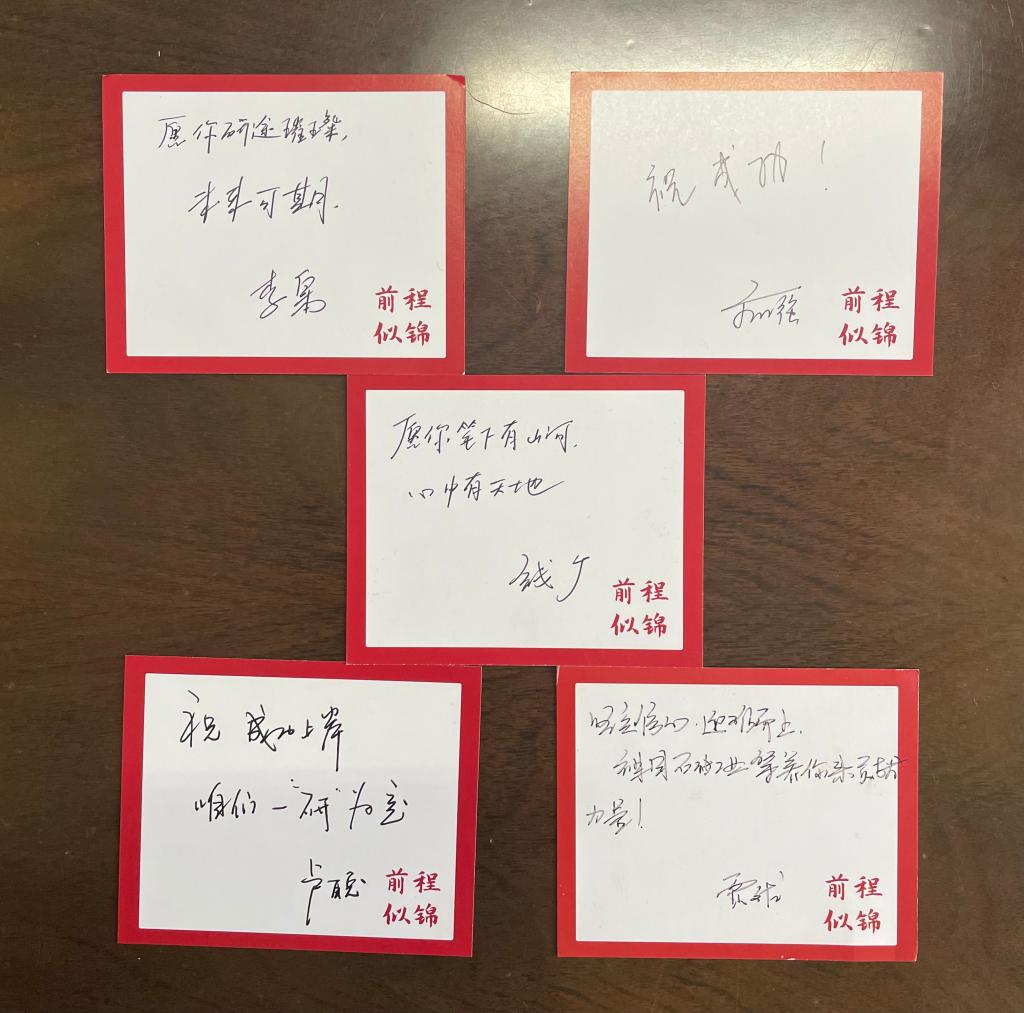 愿你研途璀璨,
未来可期.
李杲
前程
似锦
祝成功!
前程
似锦
愿你笔下有山河,
心中有天地
钱
前程
似锦
祝 成功上岸
咱们一“研”为定
卢聪
前程
似锦
坚定信心,迎难而上.
祖国 等着你来贡献
力量!
贾
前程
似锦